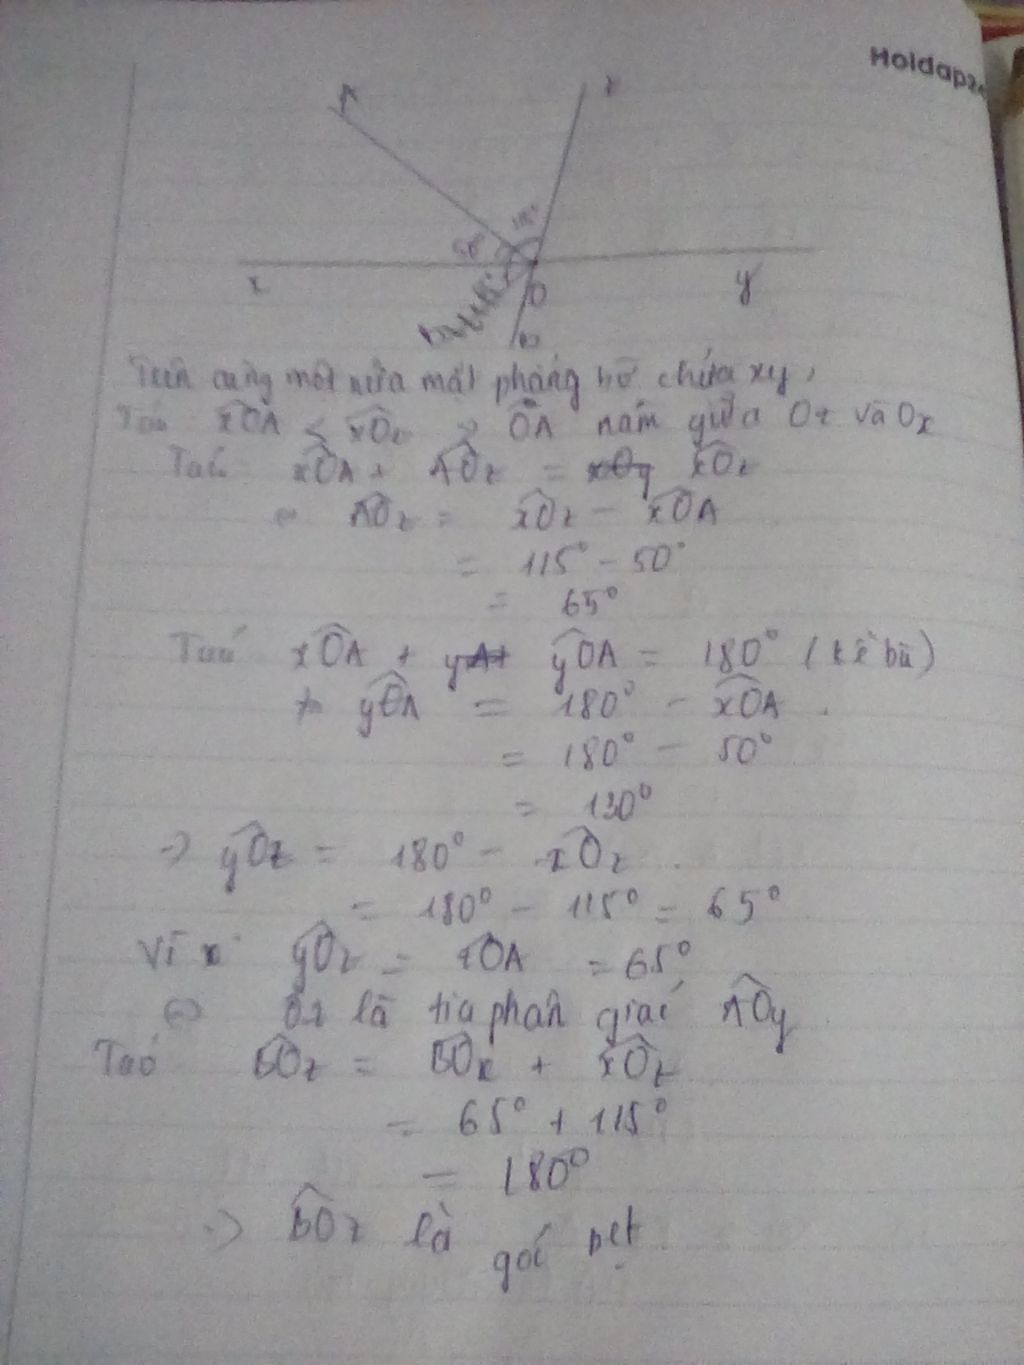 Hoidap24
A z
50°
x O y
B
Trên cùng một nửa mặt phẳng bờ chứa xy,
Ta có xOA < xOz => OA nằm giữa Oz và Ox
Ta có xOA + AOz = xOy xOz
AOz = xOz - xOA
= 115° - 50°
= 65°
Ta có xOA + yA+ yOA = 180° (kề bù)
yOA = 180° - xOA
= 180° - 50°
= 130°
=> yOz = 180° - xOz
= 180° - 115° = 65°
Vì yOz = zOA = 65°
Oz là tia phân giác AOy
Ta có BOz = BOx + xOz
= 65° + 115°
= 180°
=> BOz là góc bẹt